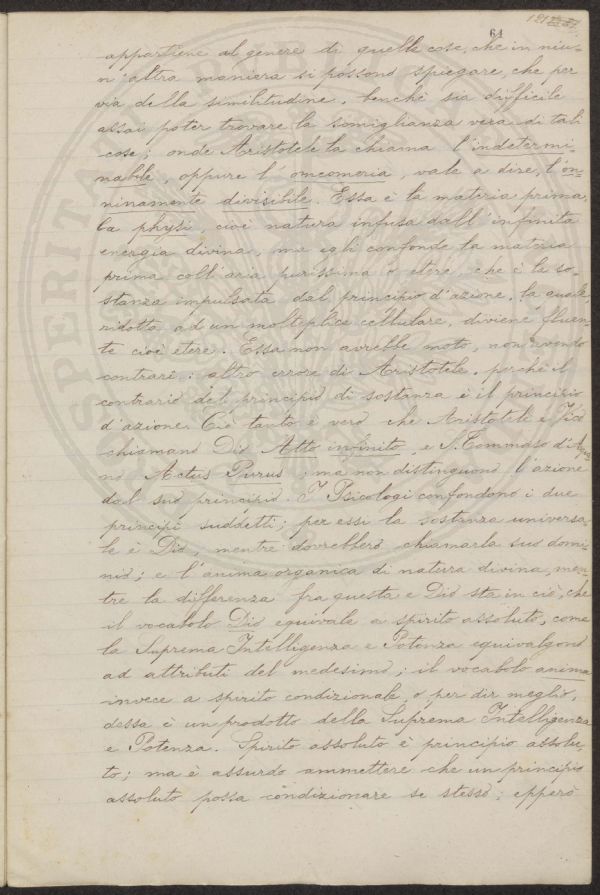 64
appartiene al genere di quelle cose, che in niu-
n'altra maniera si possono spiegare, che per
via della similitudine, benchè sia difficile
assai poter trovare la somiglianza vera di tali
cose; onde Aristotele la chiama l'indetermi-
nabile, oppure l'omeomeria, vale a dire, l'on-
ninamente divisibile. Essa è la materia prima,
la physi, cioè natura infusa dall'infinita
energia divina, ma egli confonde la materia
prima coll'aria purissima o etere, che è la so-
stanza impulsata dal principio d'azione, la quale,
ridotta ad un molteplice cellulare, diviene fluen-
te cioè etere. Essa non avrebbe moto, non avendo
contrari: altro errore di Aristotele, perchè il
contrario del principio di sostanza è il principio
d'azione. Ciò tanto è vero che Aristotele e
chiamano Dio Atto infinito, e S. Tommaso d'Aqui-
no Actus Purus; ma non distinguono l'azione
dal suo principio. I Psicologi confondono i due
principi suddetti; per essi la sostanza universa-
le è Dio, mentre dovrebbero chiamarla suo domi-
nio; e l'anima organica di natura divina, men-
tre la differenza fra questa e Dio sta in ciò, che
il vocabolo Dio equivale a spirito assoluto, come
la Suprema Intelligenza e Potenza equivalgono
ad attributi del medesimo; il vocabolo anima
invece a spirito condizionale o, per dir meglio,
dessa è un prodotto della Suprema Intelligenza
e Potenza. Spirito assoluto è principio assolu-
to; ma è assurdo ammettere che un principio
assoluto possa condizionare se stesso; epperò